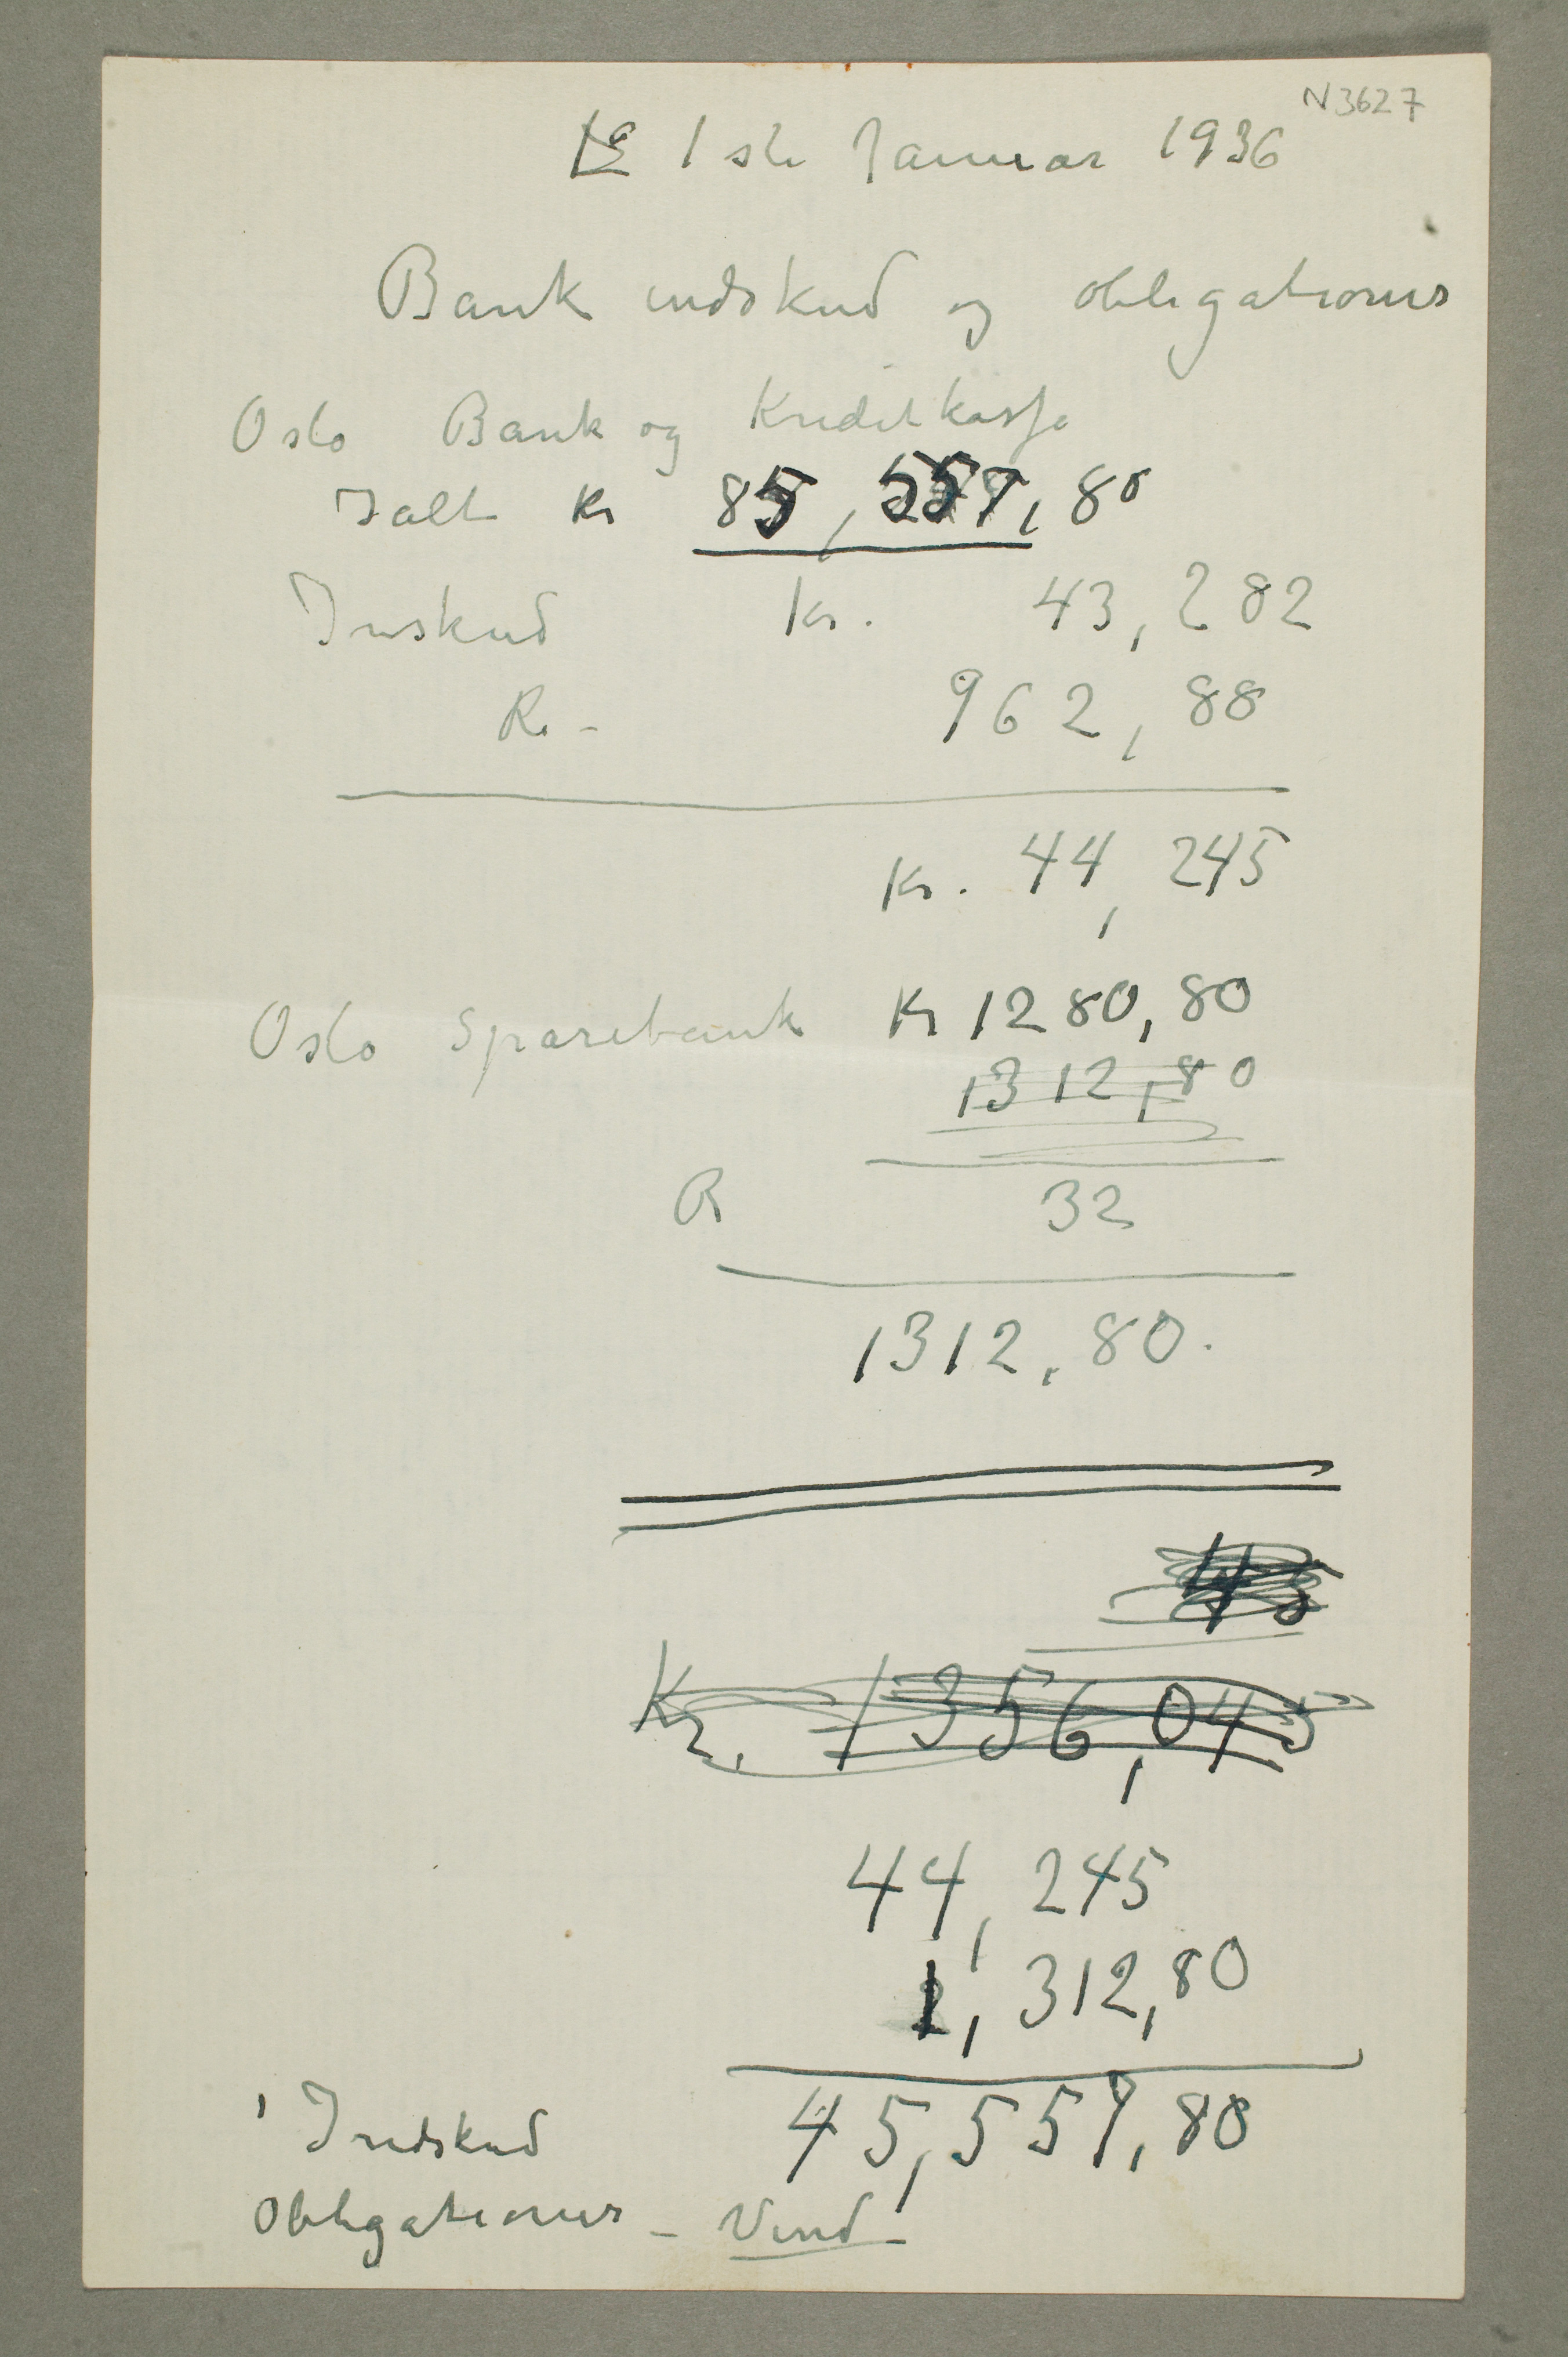 N3627
1ste Januar 1936
Bank indskud og obligationer
Oslo Bank og Kreditkasse
Ialt Kr 85,557,80
Inskud Kr. 43,282
R. - 962,88
Kr. 44,245
Oslo Sparebank Kr 1280,80
1312,80
R 32
1312,80.
45
Kr. 1356,045
44,245
1,312,80
45,557,80
Indskud
Obligationer - Vend -